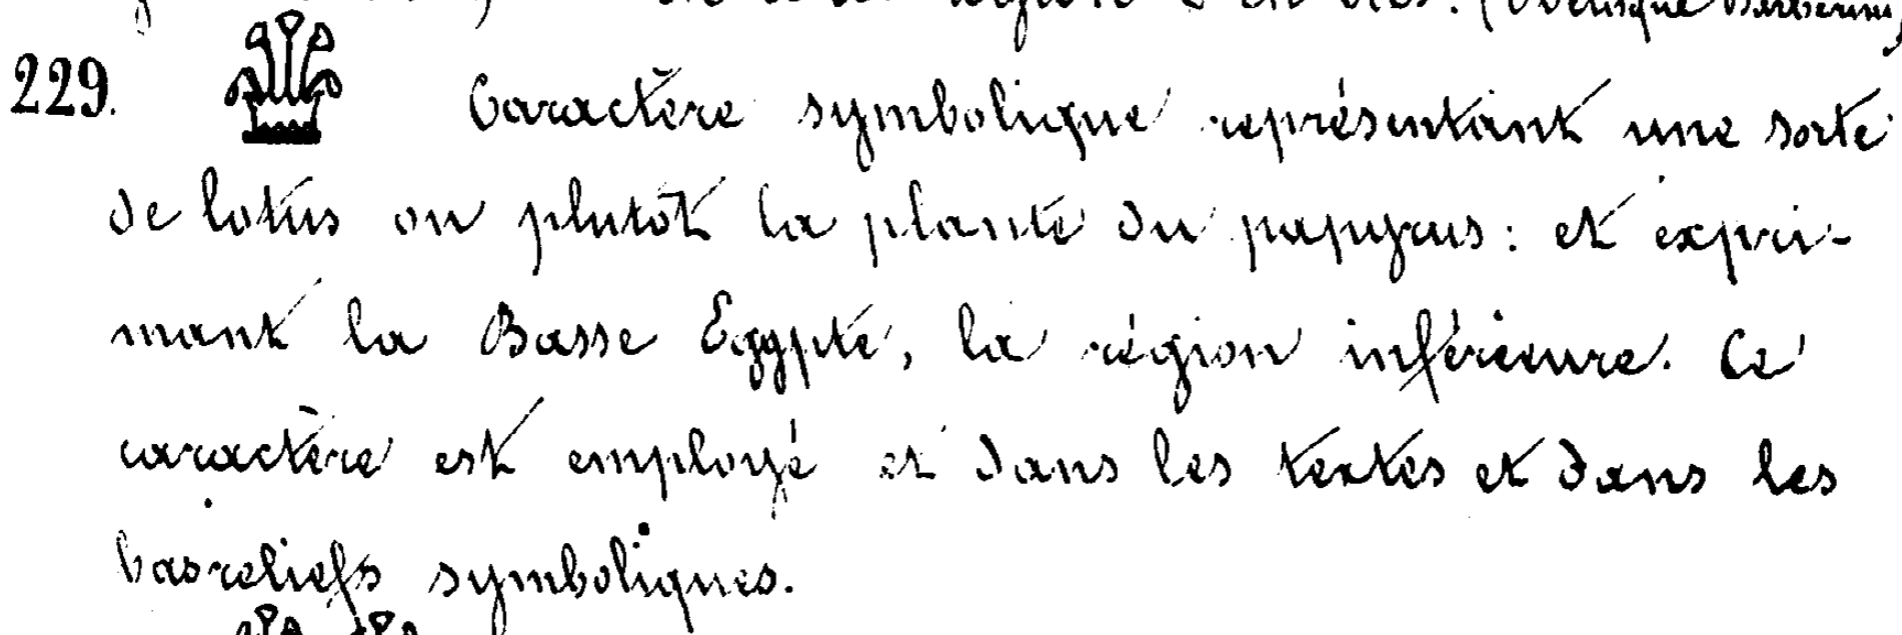 (Obélisque Barberini)
229. Caractère symbolique représentant une sorte
de lotus ou plutôt la plante du papyrus : et expri-
mant la Basse Egypte, la région inférieure. Ce
caractère est employé et dans les textes et dans les
basreliefs symboliques.